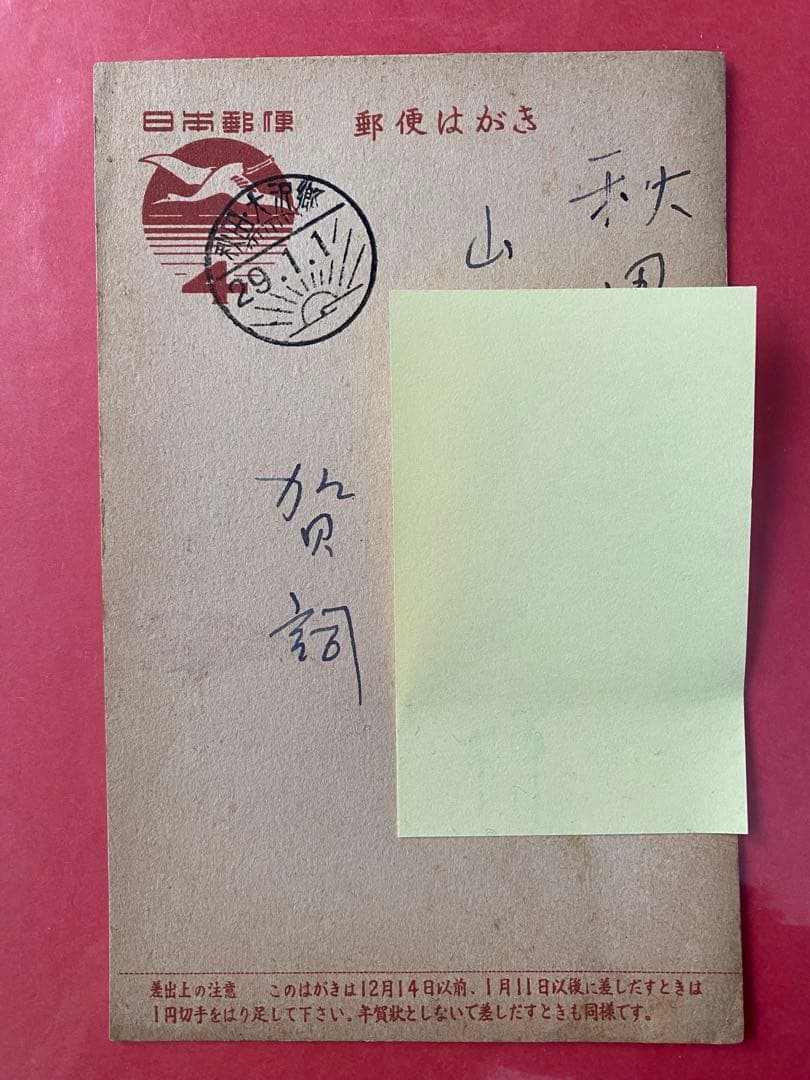 日本郵便 郵便はがき
4
秋田大沢郷
29.1.1
秋田
山
賀詞
差出上の注意 このはがきは12月14日以前、1月11日以後に差しだすときは
1円切手をはり足して下さい。年賀状としないで差しだすときも同様です。